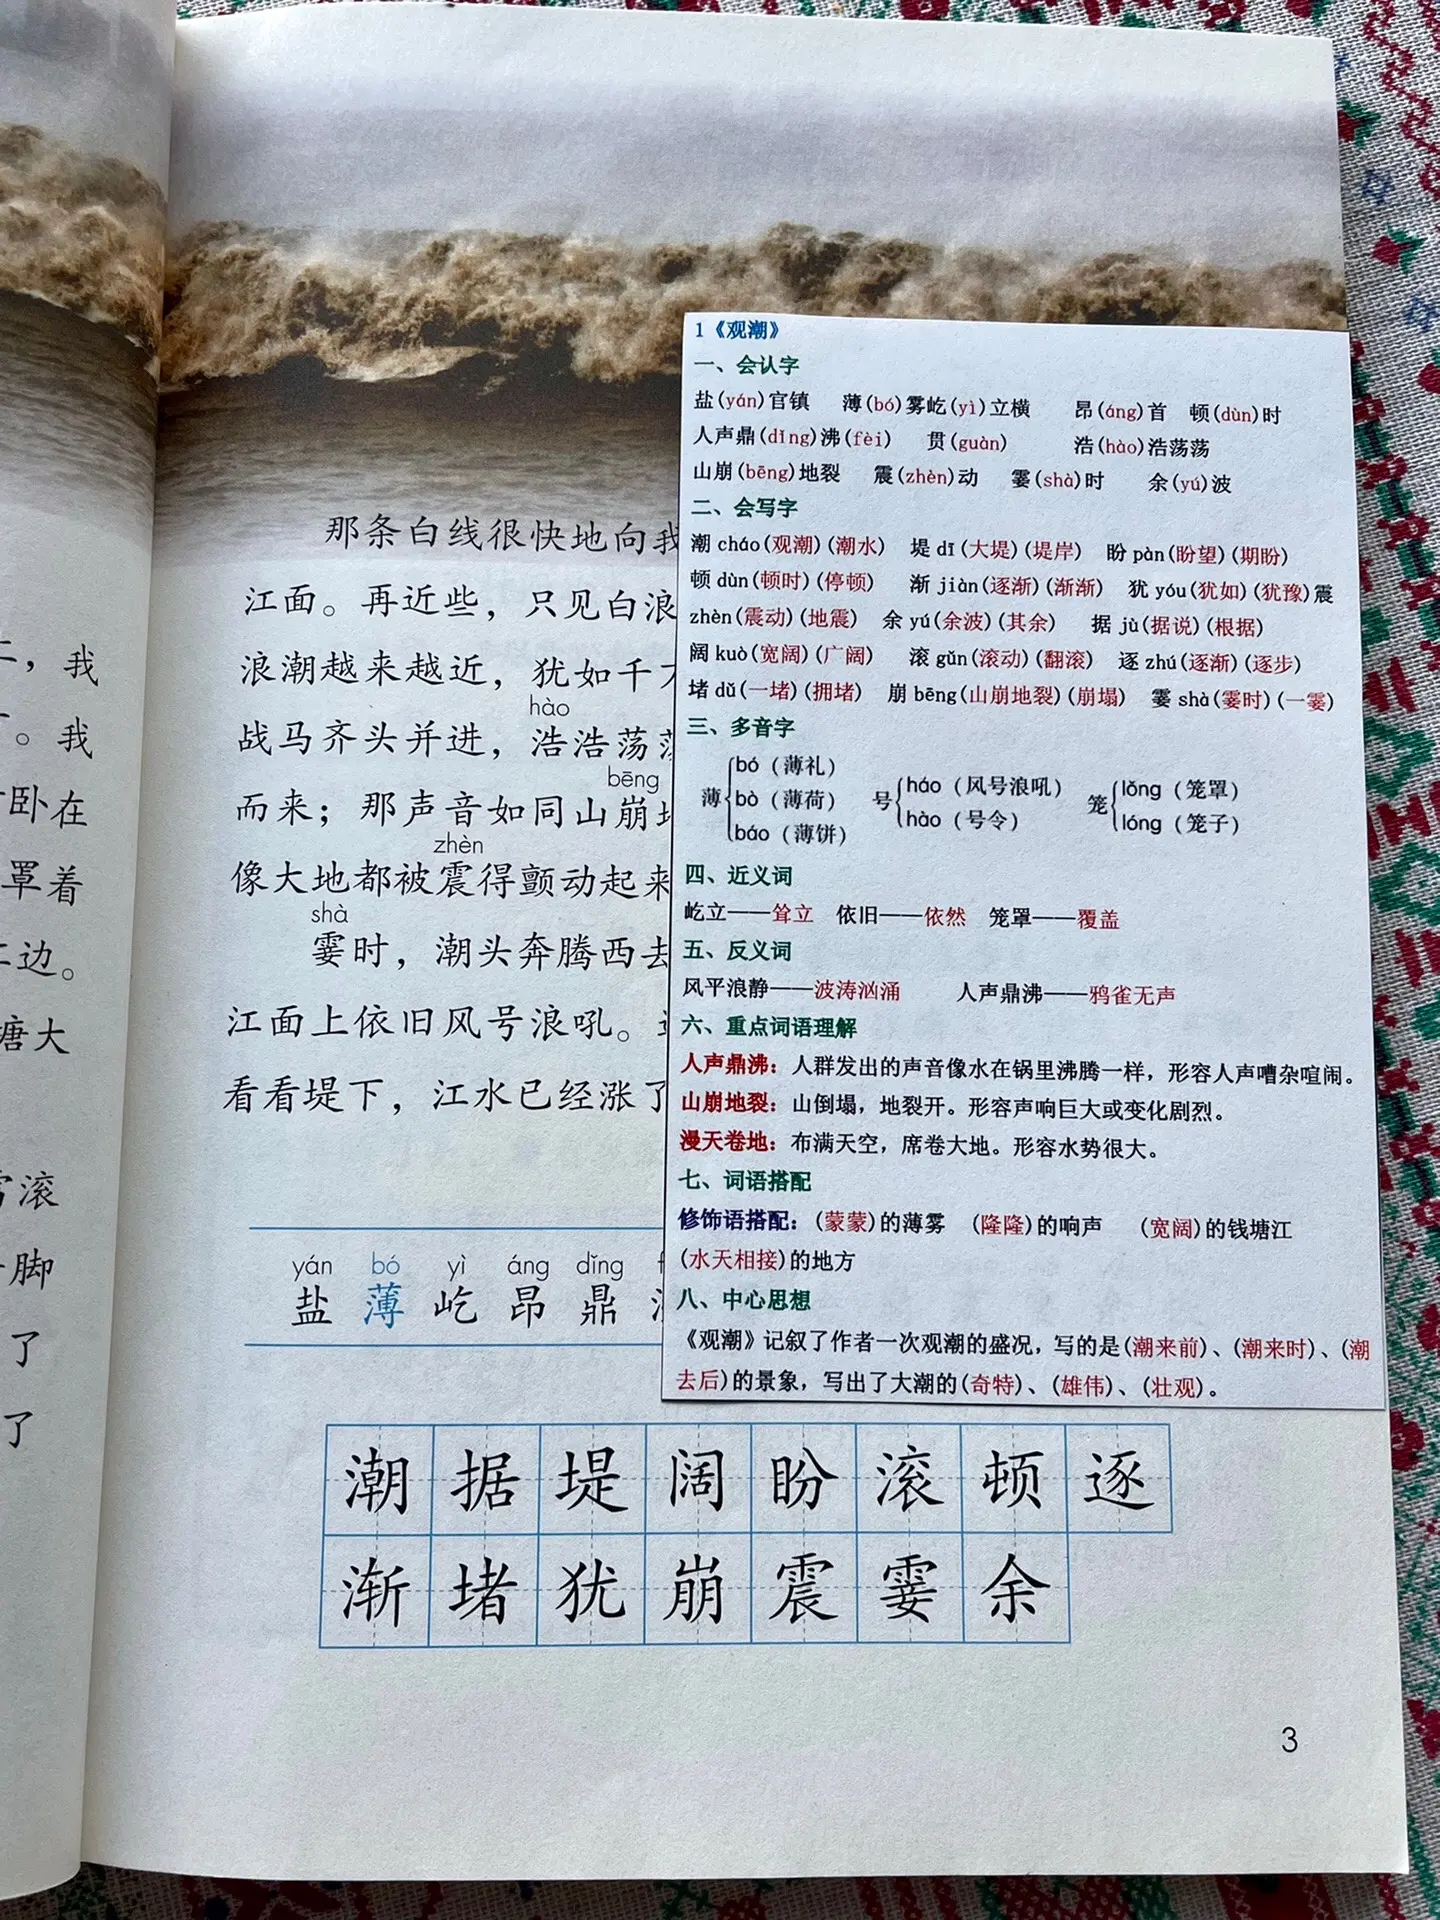 二，我
。我
卧在
罩着
江边。
塘大
雷滚
脚
了
了
那条白线很快地向我
江面。再近些，只见白浪
浪潮越来越近，犹如千
hào
战马齐头并进，浩浩荡荡
bēng
而来；那声音如同山崩地
zhèn
像大地都被震得颤动起来
shà
霎时，潮头奔腾西去
江面上依旧风号浪吼。
看看堤下，江水已经涨了
yán bó yì áng dǐng
盐 薄 屹 昂 鼎
1《观潮》
一、会认字
盐(yán)官镇 薄(bó)雾屹(yì)立横 昂(áng)首 顿(dùn)时
人声鼎(dǐng)沸(fèi) 贯(guàn) 浩(hào)浩荡荡
山崩(bēng)地裂 震(zhèn)动 霎(shà)时 余(yú)波
二、会写字
潮 cháo(观潮)(潮水) 堤 dī(大堤)(堤岸) 盼 pàn(盼望)(期盼)
顿 dùn(顿时)(停顿) 渐 jiàn(逐渐)(渐渐) 犹 yóu(犹如)(犹豫)震
zhèn(震动)(地震) 余 yú(余波)(其余) 据 jù(据说)(根据)
阔 kuò(宽阔)(广阔) 滚 gǔn(滚动)(翻滚) 逐 zhú(逐渐)(逐步)
堵 dǔ(一堵)(拥堵) 崩 bēng(山崩地裂)(崩塌) 霎 shà(霎时)(一霎)
三、多音字
薄 bó（薄礼） bò（薄荷） báo（薄饼）
号 háo（风号浪吼） hào（号令）
笼 lǒng（笼罩） lóng（笼子）
四、近义词
屹立——耸立 依旧——依然 笼罩——覆盖
五、反义词
风平浪静——波涛汹涌 人声鼎沸——鸦雀无声
六、重点词语理解
人声鼎沸：人群发出的声音像水在锅里沸腾一样，形容人声嘈杂喧闹。
山崩地裂：山倒塌，地裂开。形容声响巨大或变化剧烈。
漫天卷地：布满天空，席卷大地。形容水势很大。
七、词语搭配
修饰语搭配：(蒙蒙)的薄雾 (隆隆)的响声 (宽阔)的钱塘江
(水天相接)的地方
八、中心思想
《观潮》记叙了作者一次观潮的盛况，写的是(潮来前)、(潮来时)、(潮
去后)的景象，写出了大潮的(奇特)、(雄伟)、(壮观)。
潮 据 堤 阔 盼 滚 顿 逐
渐 堵 犹 崩 震 霎 余
3